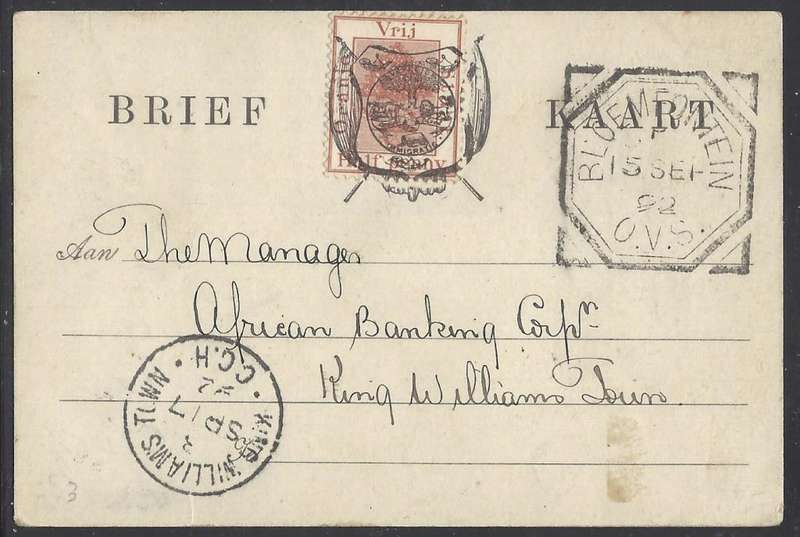 Vrij
BRIEF KAART
Oranje
IMMIGRATIE
Half penny
BLOEMFONTEIN
15 SEP
92
O.V.S.
Aan The Manager
African Banking Corpn
King Williams Town
KING WILLIAM'S TOWN
C.G.H
SP 17
92
3